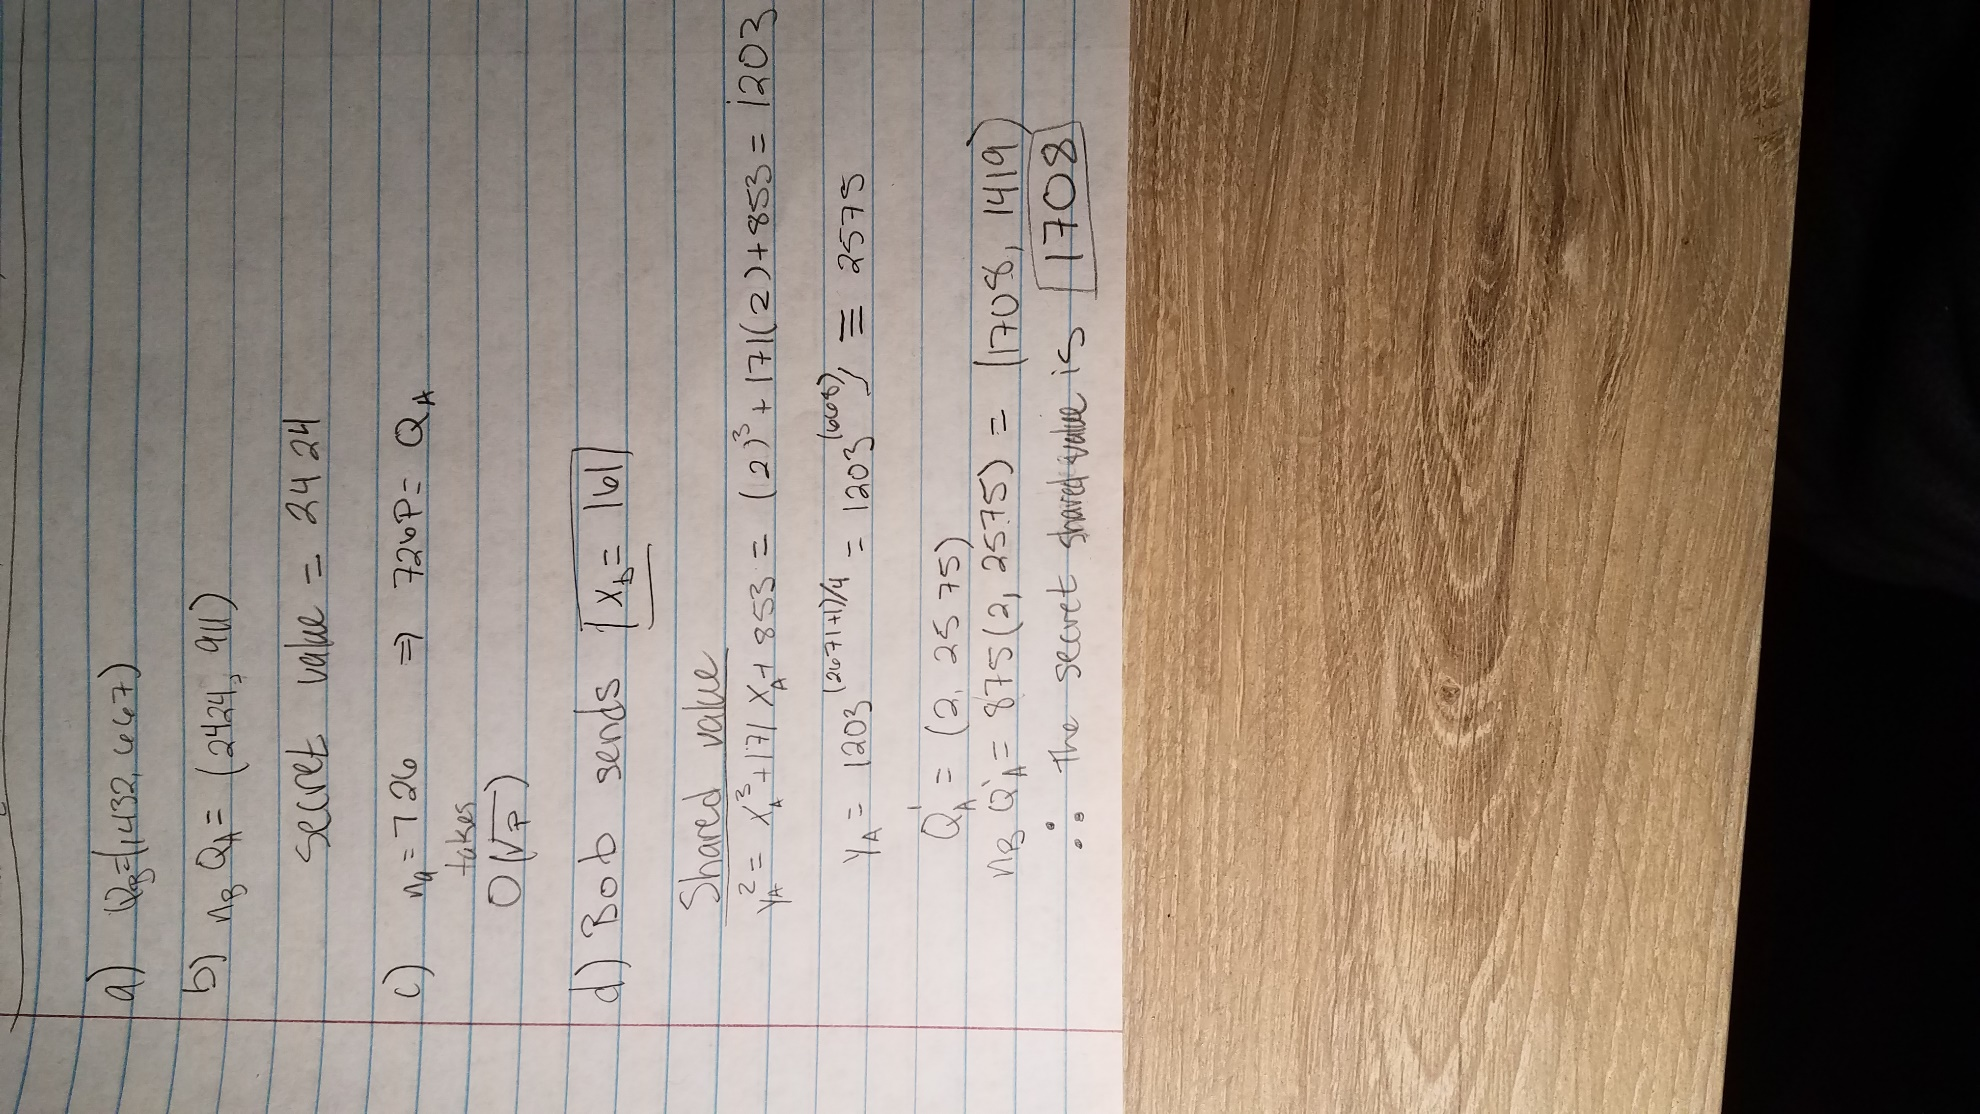 a) Q_B=(1432, 667)
b) n_B Q_A = (2424, 911)
secret value = 2424
c) n_a = 726 ⇒ 726P = Q_A
takes
O(√P)
d) Bob sends x_b = 161
Shared value
y_A^2 = x_A^3 + 171 x_A + 853 = (2)^3 + 171(2) + 853 = 1203
y_A = 1203^(2671+1)/4 = 1203^(668), ≡ 2575
Q_A' = (2, 2575)
n_B Q_A' = 875(2, 2575) = (1708, 1419)
∴ the secret shared value is 1708